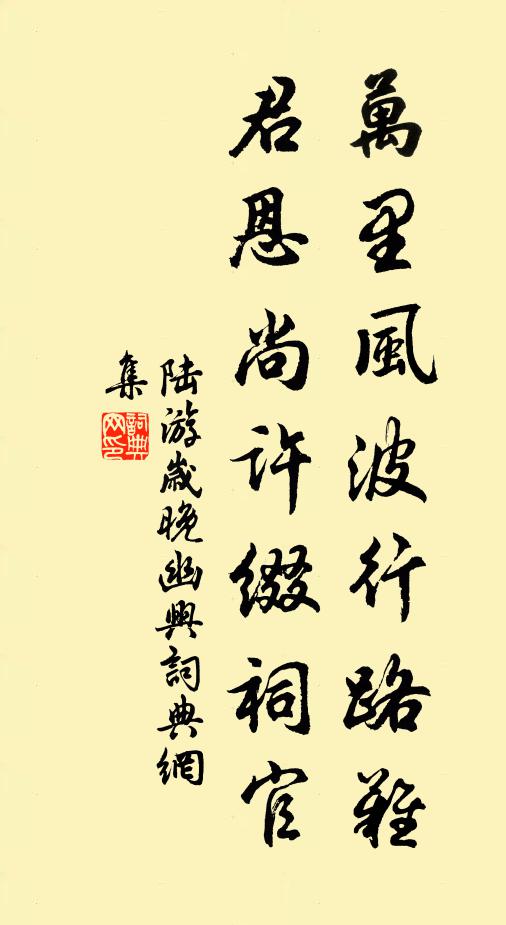 萬里風波行路難
君恩尚許綴祠官
陆游歲晚幽興詞典網
集
詞典
网印